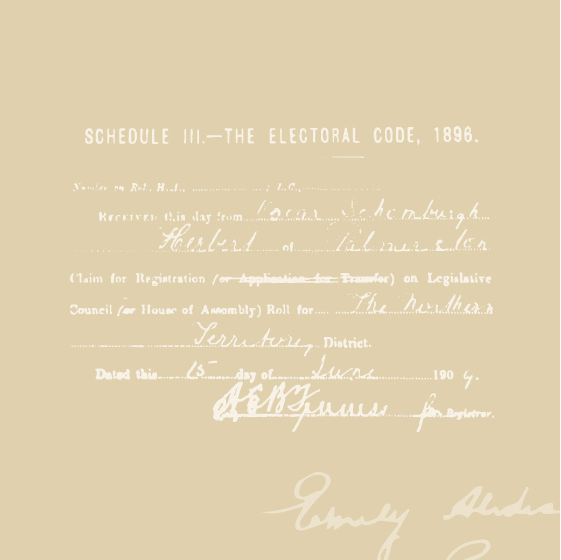 SCHEDULE III.—THE ELECTORAL CODE, 1896.
Number on Rol, H.A., ; L.C.,
RECEIVED this day from Oscar Schomburgh
Herbert of Palmerston
Claim for Registration (or Application for Transfer) on Legislative
Council (or House of Assembly) Roll for The Northern
Territory District.
Dated this 15 day of June 190 4.
for Registrar.
Emily